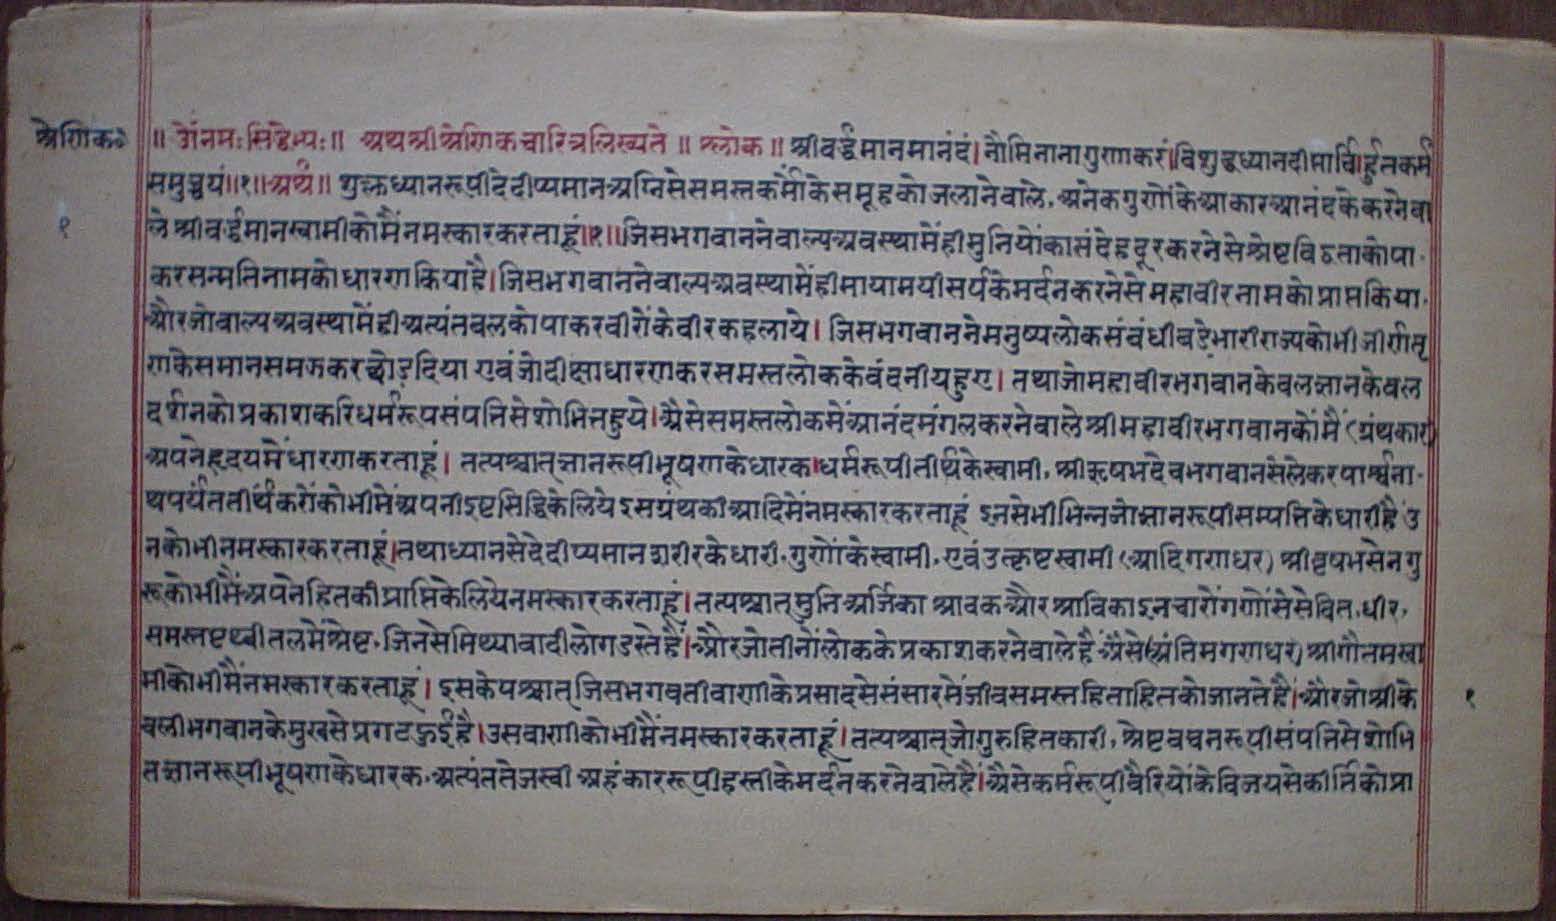 श्रेणिक॰
॥ ॐनमःसिद्धेभ्यः॥ अथश्रीश्रेणिकचारित्रलिख्यते ॥ श्लोक॥ श्रीवर्द्धमानमानंदं। नौमिनानागुणाकरं। विशुद्धध्यानदीप्तार्चि। र्हुतकर्म
समुच्चयं॥१॥अर्थ॥ शुक्लध्यानरूपीदेदीप्यमानअग्निसेसमस्तकर्मोंकेसमूहकोजलानेवाले, अनेकगुणोंकेआकारआनंदकेकरनेवा
१
लेश्रीवर्द्धमानस्वामीकोमैंनमस्कारकरताहूं॥१॥जिसभगवाननेवाल्यअवस्थामेंहीमुनियोंकासंदेहदूरकरनेसेश्रेष्टविऽताकोपा-
करसन्मतिनामकोधारणकियाहै। जिसभगवाननेवाल्यअवस्थामेंहीमायामयीसर्पकेमर्दनकरनेसेमहावीरनामकोप्राप्तकिया,
औरजोवाल्यअवस्थामेंहीअत्यंतवलकोपाकरवीरोंकेवीरकहलाये। जिसभगवाननेमनुष्यलोकसंबंधीबडेभारीराज्यकोभीजीर्णतृ
णकेसमानसमझकरछोड़दिया एवंजोदीक्षाधारणकरसमस्तलोककेवंदनीयहुए। तथाजोमहावीरभगवानकेवलज्ञानकेवल
दर्शनकोप्रकाशकरिधर्मरूपसंपत्तिसेशोभितहुये। ऐसेसमस्तलोकमेंआनंदमंगलकरनेवालेश्रीमहावीरभगवानकोंमैं (ग्रंथकार)
अपनेहृदयमेंधारणकरताहूं। तत्पश्चात्ज्ञानरूपीभूषणकेधारक।धर्मरूपीतीर्थकेस्वामी, श्रीऋषभदेवभगवानसेलेकरपार्श्वना-
थपर्यंततीर्थंकरोंकोभीमेंअपनीइष्टसिद्धिकेलियेइसग्रंथकीआदिमेंनमस्कारकरताहूं इनसेभीभिन्नजोज्ञानरूपीसम्पत्तिकेधारीहैंउ
नकोभीनमस्कारकरताहूं।तथाध्यानसेदेदीप्यमानशरीरकेधारी, गुणोंकेस्वामी, एवंउत्कृष्टस्वामी (आदिगणधर) श्रीवृषभसेनगु
रूकोभीमैंअपनेहितकीप्राप्तिकेलियेनमस्कारकरताहूं। तत्पश्चात्मुनिअर्जिका श्रावकऔरश्राविकाइनचारोंगणोंसेसेवित, धीर,
समस्तपृथ्वीतलमेंश्रेष्ट, जिनसेमिथ्यावादीलोगडरतेहैं।औरजोतीनोंलोककेप्रकाशकरनेवालेहैंऐसे(अंतिमगणधर) श्रीगौतमस्वा
मीकोभीमैंनमस्कारकरताहूं। इसकेपश्चात्जिसभगवतीवाणीकेप्रसादसेसंसारमेंजीवसमस्तहिताहितकोजानतेहैं। औरजोश्रीके
१
वलीभगवानकेमुखसेप्रगटहुईहै।उसवाणीकोभीमैंनमस्कारकरताहूं। तत्पश्चात्जोगुरुहितकारी, श्रेष्टवचनरूपीसंपत्तिसेशोभि
तज्ञानरूपीभूषणकेधारक, अत्यंततेजस्वी अहंकाररूपीहस्तीकेमर्दनकरनेवालेहैं। ऐसेकर्मरूपीवैरियोंकेविजयसेकीर्त्तिकोप्रा